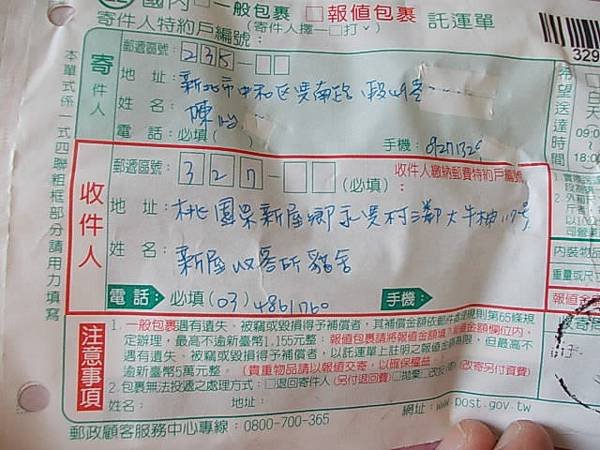 國內□一般包裹 □報值包裹 託運單
寄件人特約戶編號： (寄件人擇一□打ˇ)
329
本單式係一式四聯粗框部分請用力填寫
寄件人
郵遞區號：235
地 址：新北市中和區景南路 段
姓 名：陳
電 話：必填( ) 手機：
希望送達時間
白天
09:00
18:00
收件人
郵遞區號：327 (必填) 收件人繳納郵費特約戶編號：
地 址：桃園縣新屋鄉永興村三鄰大牛欄117號
姓 名：新屋收容所貓舍
電話：必填(03)4861760 手機：
內裝物品
重量或尺寸
報值金額
注意事項
1.一般包裹遇有遺失、被竊或毀損得予補償者，其補償金額依郵件處理規則第65條規
定辦理，最高不逾新臺幣1,155元整；報值包裹請將報值金額填入報值金額欄位內，
遇有遺失、被竊或毀損得予補償者，以託運單上註明之報值金額為限，但最高不
逾新臺幣5萬元整。(貴重物品請以報值交寄，以確保權益)
2.包裹無法投遞之處理方式：□退回寄件人(另付退回費)□拋棄□改投 (改寄另付資費)
姓名： 地址：
郵政顧客服務中心專線：0800-700-365 網址：www.post.gov.tw